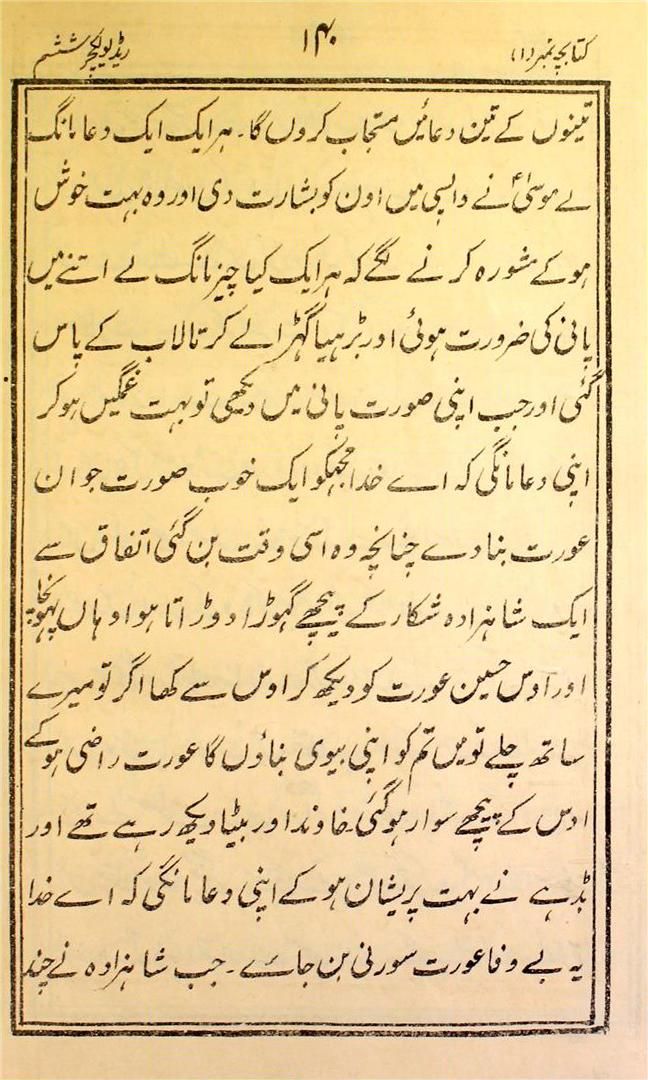 کتابچہ نمبر (۱) ۱۴۰ ریڈیو لکچر ششم
تینوں کے تین دعائیں مستجاب کروں گا۔ ہر ایک ایک دعا مانگ
لے موسیٰؑ نے واپسی میں اون کو بشارت دی اور وہ بہت خوش
ہو کے مشورہ کرنے لگے کہ ہر ایک کیا چیز مانگ لے اتنے میں
پانی کی ضرورت ہوئی اور بڑہیا گہڑا لے کر تالاب کے پاس
گئی اور جب اپنی صورت پانی میں دیکھی تو بہت غمگیں ہو کر
اپنی دعا مانگی کہ اے خدا مجہکو ایک خوب صورت جوان
عورت بنا دے چنانچہ وہ اسی وقت بن گئی اتفاق سے
ایک شاہزادہ شکار کے پیچھے گہوڑا دوڑاتا ہوا وہاں پہونچا
اور اوس حسین عورت کو دیکھ کر اوس سے کھا اگر تو میرے
ساتھ چلے تو میں تم کو اپنی بیوی بناؤں گا عورت راضی ہو کے
اوس کے پیچھے سوار ہو گئی۔ خاوند اور بیٹا دیکھ رہے تھے اور
بڈہے نے بہت پریشان ہو کے اپنی دعا مانگی کہ اے خدا
یہ بے وفا عورت سورنی بن جائے۔ جب شاہزادہ نے چند